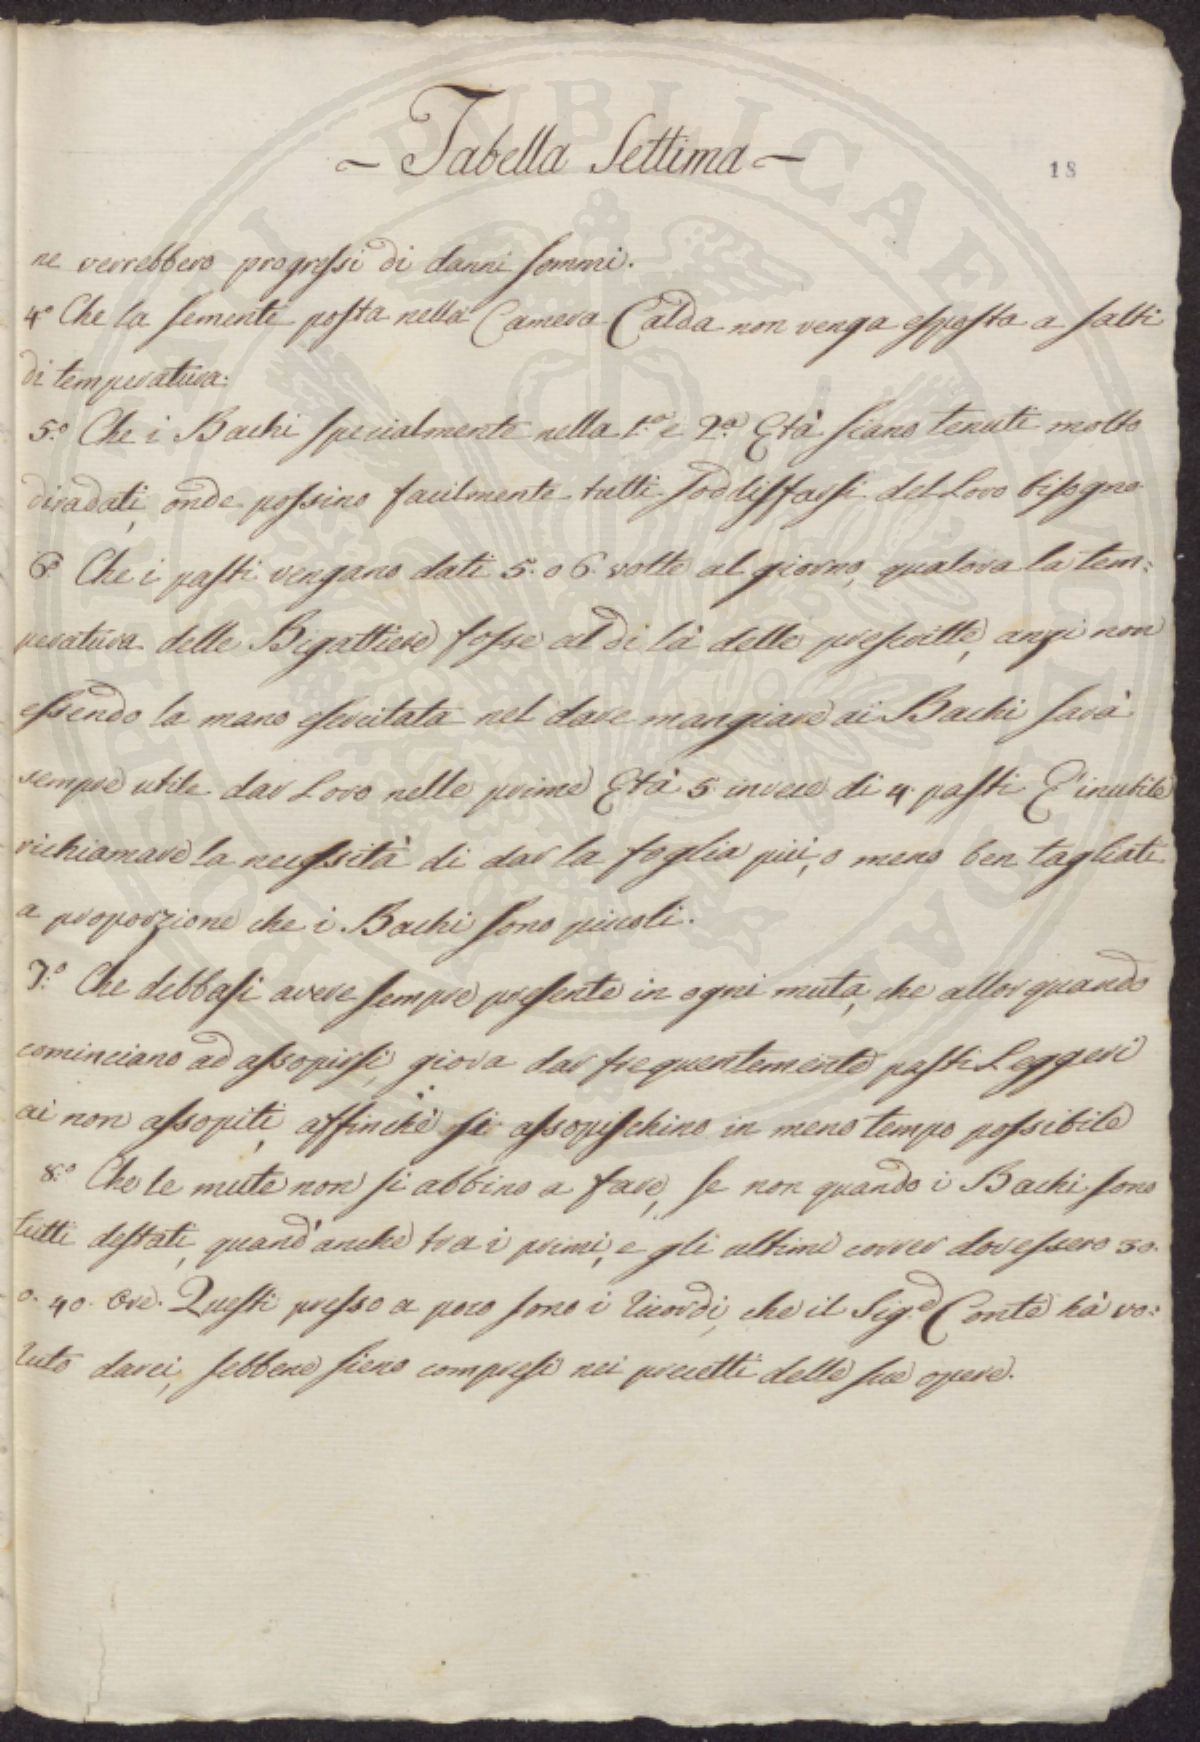 ~ Tabella Settima ~
18
ne verrebbero progressi di danni sommi.
4.° Che la semente posta nella Camera Calda non venga esposta a salti
di temperatura:
5.° Che i Bachi specialmente nella 1.ª e 2.ª Età siano tenuti molto
diradati, onde possino facilmente tutti soddisfarsi del Loro bisogno
6.° Che i pasti vengano dati 5. o 6. volte al giorno, qualora la tem:
peratura delle Bigattiere fosse al di là delle prescritte, anzi non
essendo la mano esercitata nel dare mangiare ai Bachi sarà
sempre utile dar Loro nelle prime Età 5 invece di 4. pasti E' inutile
richiamare la necessità di dar la foglia più, o meno ben tagliata
a proporzione che i Bachi sono piccoli.
7.° Che debbasi avere sempre presente in ogni muta, che allor quando
cominciano ad assopirsi, giova dar frequentemente pasti Leggeri
ai non assopiti, affinchè si assopischino in meno tempo possibile
8.° Che le mute non si abbino a fare, se non quando i Bachi sono
tutti destati, quand' anche tra i primi, e gli ultimi correr dovessero 30.
o. 40. Ore. Questi presso a poco sono i ricordi, che il Sig.e Conte hà vo:
luto darci, sebbene sieno compresi nei precetti delle sue opere.